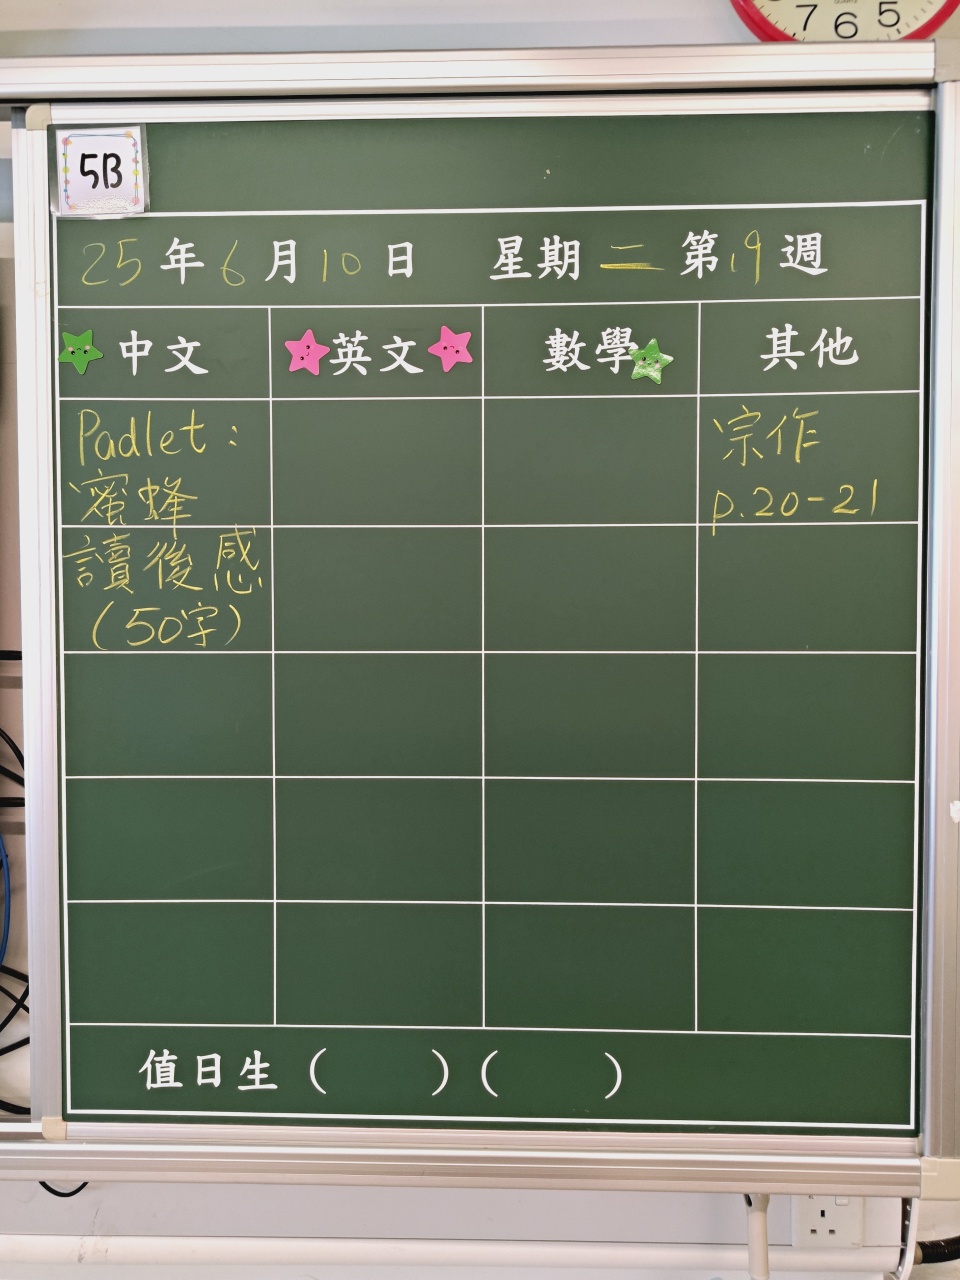 7 6 5
5B
25年6月10日 星期二 第19週
中文 英文 數學 其他
Padlet：
蜜蜂
讀後感
（50字）
宗作
p.20-21
值日生（ ）（ ）